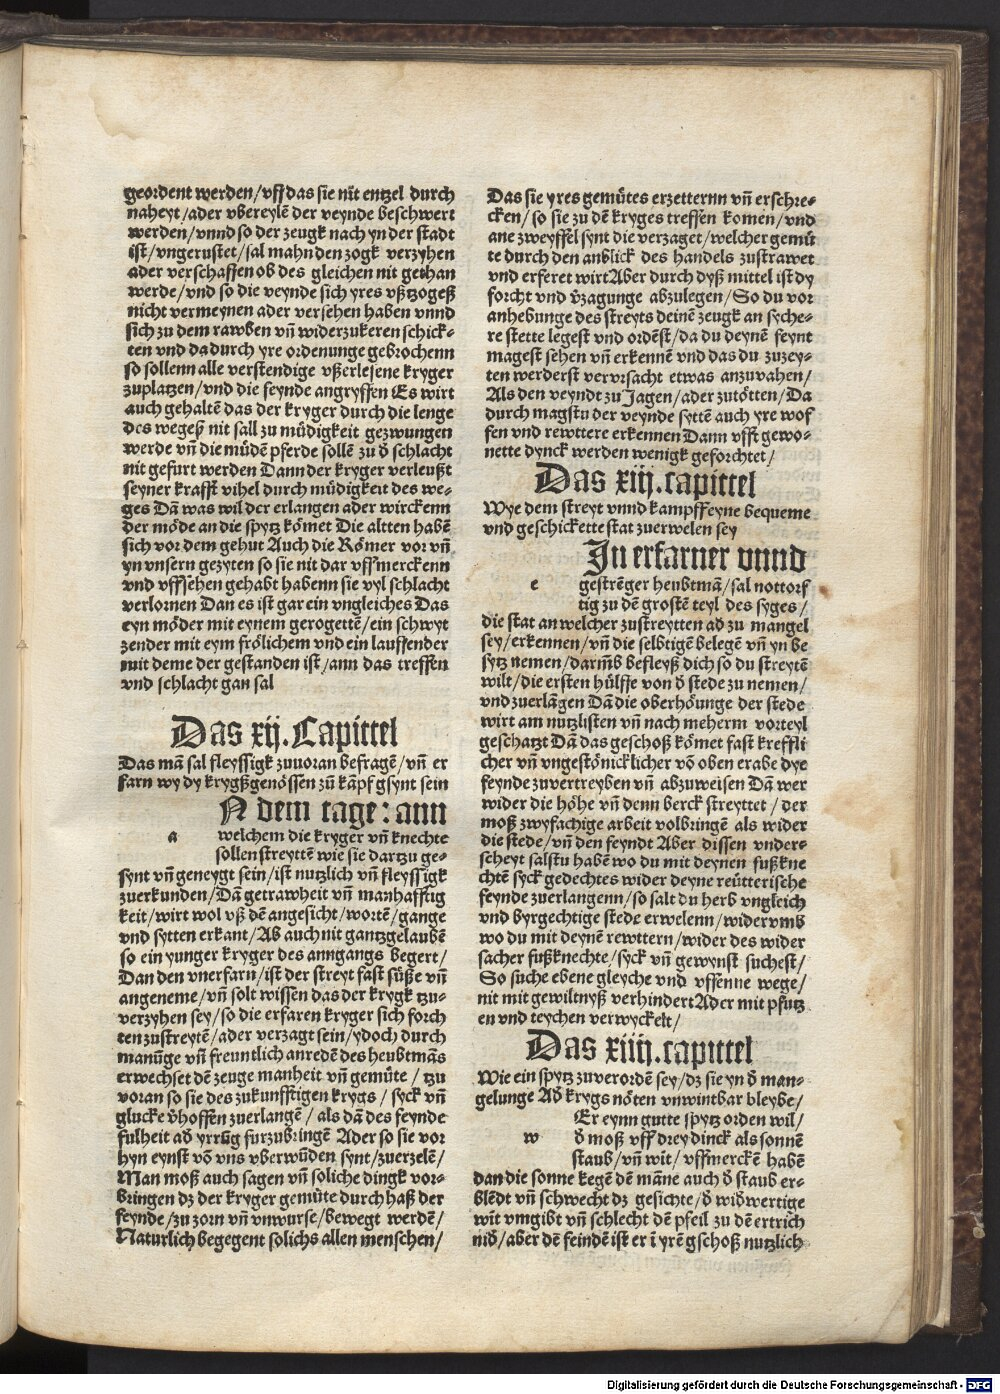 geordent werden/vff das sie nit entzel durch
naheyt/ader vbereylē der veynde beschwert
werden/vnnd so der zeugk nach yn der stadt
ist/vngerustet/sal mahn den zogk verzyhen
ader verschaffen ob des gleichen nit gethan
werde/vnd so die veynde sich yres vßtzogeß
nicht vermeynen ader versehen haben vnnd
sich zu dem rawben vn̄ widerzukeren schick-
ten vnd dadurch yre ordenunge gebrochenn
so sollenn alle verstendige vßerlesene kryger
zuplatzen/vnd die feynde angryffen Es wirt
auch gehaltē das der kryger durch die lenge
des wegeß nit sall zu mūdigkeit gezwungen
werde vn̄ die mūdē pferde sollē zu d̄ schlacht
nit gefurt werden Dann der kryger verleußt
seyner krafft vihel durch mūdigkeit des we-
ges Dā was wil der erlangen ader wirckenn
der mōde an die spytz kōmet Die altten habē
sich vor dem gehut Auch die Rōmer vor vn̄
yn vnsern gezyten so sie nit dar vffmerckenn
vnd vffsehen gehabt habenn sie vyl schlacht
verlornen Dan es ist gar ein vngleiches Das
eyn mōder mit eynem gerogettē/ein schwyt
zender mit eym frōlichem vnd ein lauffender
mit deme der gestanden ist/ann das treffen
vnd schlacht gan sal
Das xij. Capittel
Das mā sal fleyssigk zuuoran befragē/vn̄ er
farn wy dy krygßgenōssen zū kāpf gsynt sein
N dem tage: ann
a welchem die kryger vn̄ knechte
sollen streyttē wie sie dartzu ge-
synt vn̄ geneygt sein/ist nutzlich vn̄ fleyssigk
zuerkunden/Dā getrawheit vn̄ manhafftig
keit/wirt wol vß dē angesicht/wortē/gange
vnd sytten erkant/Ab auch nit gantz gelaubē
so ein yunger kryger des anngangs begert/
Dan den vnerfarn/ist der streyt fast sūße vn̄
angeneme/vn̄ solt wissen das der krygk tzu-
verzyhen sey/so die erfaren kryger sich forch
ten zustreytē/ader verzagt sein/ydoch durch
manūge vn̄ freuntlich anredē des heubtmās
erwechset dē zeuge manheit vn̄ gemūte/tzu
voran so sie des zukunfftigen krygs/syck vn̄
glucke v̄hoffen zuerlangē/als dā des feynde
fulheit ad̄ yrrūg furzubringē Ader so sie vor
hyn eynst vō vns vberwūden synt/zuerzelē/
Man moß auch sagen vn̄ soliche dingk vor-
bringen dz der kryger gemūte durch haß der
feynde/zu zorn vn̄ vnwurse/bewegt werdē/
Naturlich begegent solichs allen menschen/
Das sie yres gemūtes erzetternn vn̄ erschre-
cken/so sie zu dē kryges treffen komen/vnd
ane zweyffel synt die verzaget/welcher gemū
te durch den anblick des handels zustrawet
vnd erferet wirt Aber durch dyß mittel ist dy
forcht vnd v̄zagunge abzulegen/So du vor
anhebunge des streyts deinē zeugk an syche-
re stette legest vnd ordēst/da du deynē feynt
magest sehen vn̄ erkennē vnd das du zuzey-
ten werderst vervrsacht etwas anzuvahen/
Als den veyndt zu Jagen/ader zutōtten/Da
durch magstu der veynde syttē auch yre wof
fen vnd rewttere erkennen Dann vfft gewo-
nette dynck werden wenigk geforchtet/
Das xiij. capittel
Wye dem streyt vnnd kampff eyne bequeme
vnd geschickette stat zuerwelen sey
Jn erfarner vnnd
e gestrēger heubtmā/sal nottorf
tig zu dē grostē teyl des syges/
die stat an welcher zustreytten ad̄ zu mangel
sey/erkennen/vn̄ die selbtigē belegē vn̄ yn be
sytz nemen/darūb befleyß dich so du streytē
wilt/die ersten hūlffe von d̄ stede zu nemen/
vnd zuerlāgen Dā die oberhōunge der stede
wirt am nutzlisten vn̄ nach meherm vorteyl
geschatzt Dā das geschoß kōmet fast kreffli
cher vn̄ vngestōnicklicher vō oben erabe dye
feynde zuvertreyben vn̄ abzuweisen Dā wer
wider die hōhe vn̄ denn berck streyttet/der
moß zwyfachige arbeit volbringē als wider
die stede/vn̄ den feyndt Aber dissen vnder-
scheyt salstu habē wo du mit deynen fußkne
chtē syck gedechtes wider deyne reūtterische
feynde zuerlangenn/so salt du herb vngleich
vnd byrgechtige stede erwelenn/widervmb
wo du mit deynē rewttern/wider des wider
sacher fußknechte/syck vn̄ gewynst suchest/
So suche ebene gleyche vnd vffenne wege/
nit mit gewiltnyß verhindert Ader mit pfutz
en vnd teychen verwyckelt/
Das xiiij. capittel
Wie ein spytz zuverordē sey/dz sie yn d̄ man-
gelunge Ad̄ krygs nōten vnwintbar bleybe/
Er eynn gutte spytz orden wil/
w d̄ moß vff drey dinck als sonnē
staub/vn̄ wīt/vffmerckē habē
dan die sonne kegē dē māne auch d̄ staub er-
blēdt vn̄ schwecht dz gesichte/d̄ wid̄wertige
wīt vmgibt vn̄ schlecht dē pfeil zu dē ertrich
nid̄/aber dē feindē ist er ī yrē gschoß nutzlich
Digitalisierung gefördert durch die Deutsche Forschungsgemeinschaft - DFG